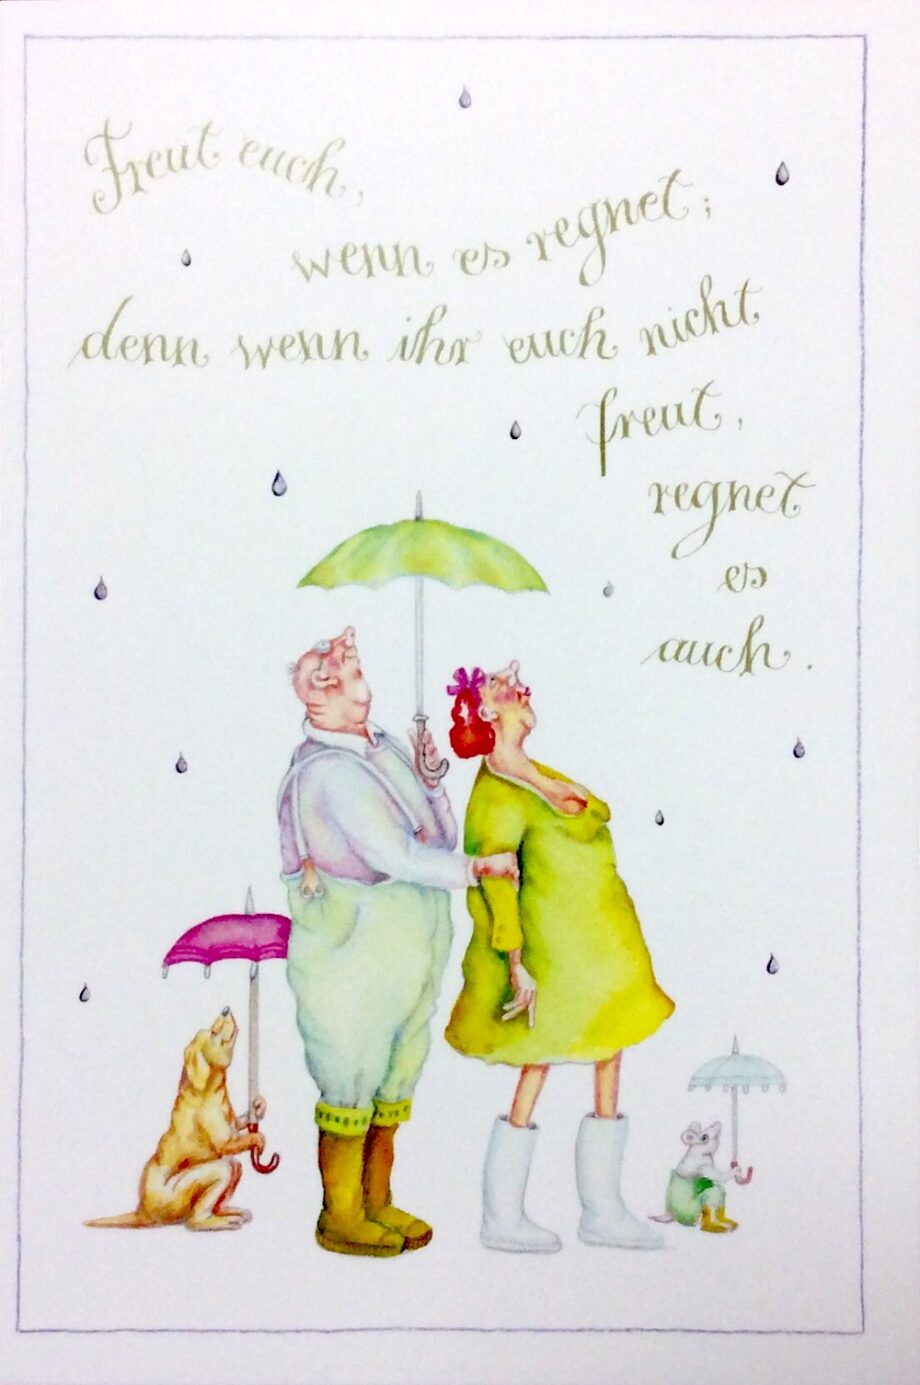 Freut euch,
wenn es regnet;
denn wenn ihr euch nicht
freut,
regnet
es
auch.